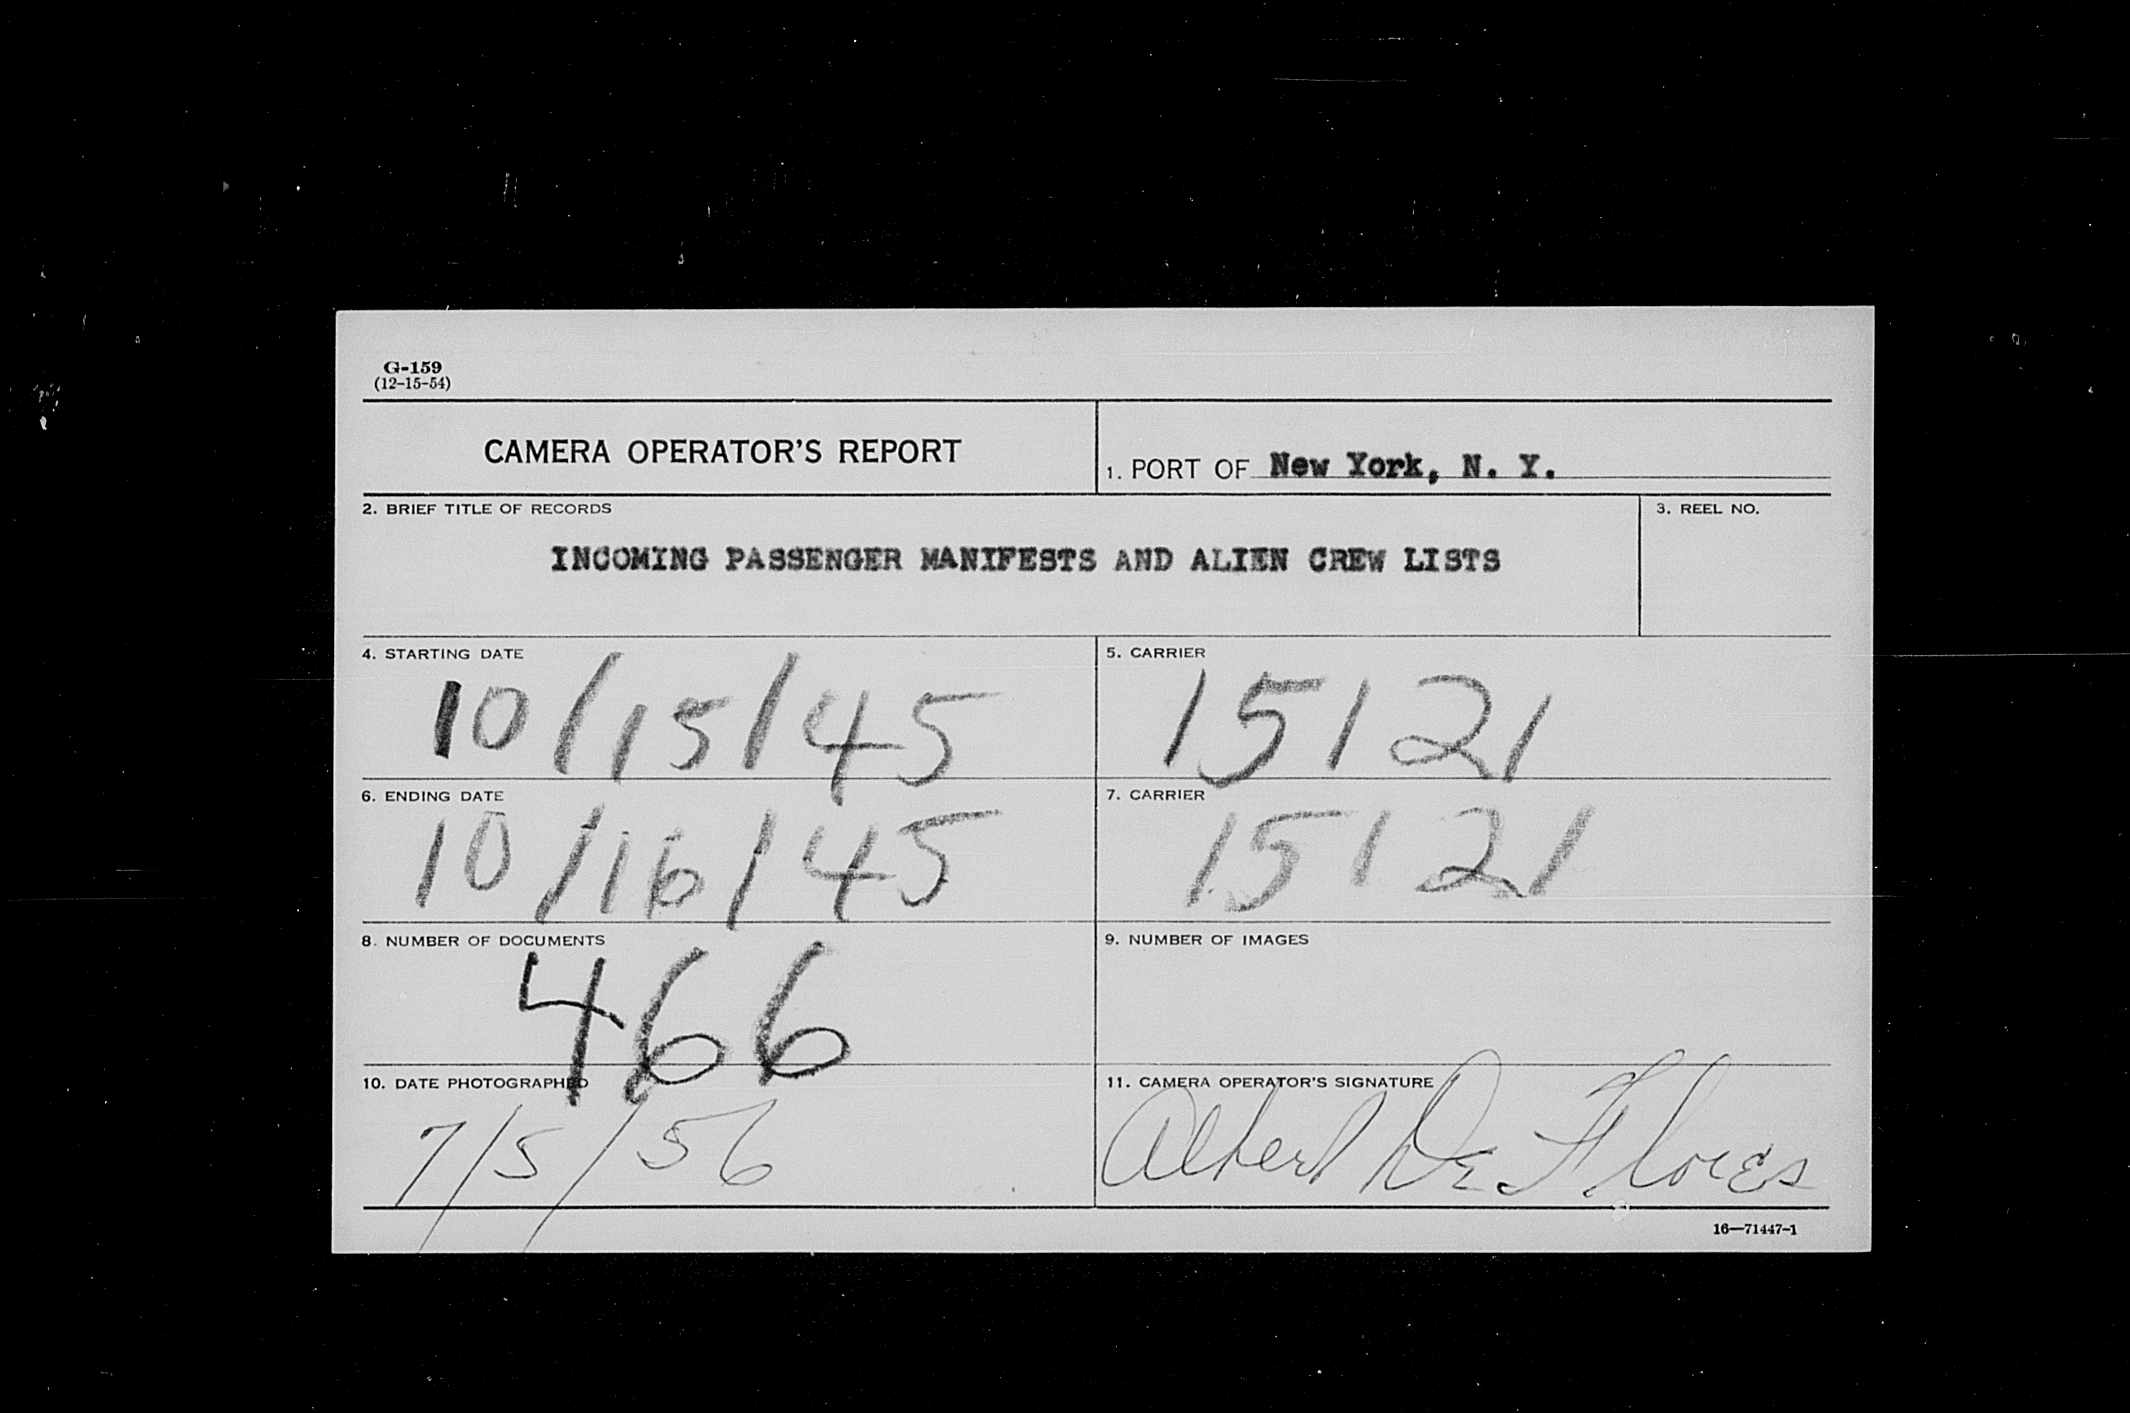 G-159
(12-15-54)
CAMERA OPERATOR'S REPORT
1. PORT OF New York, N. Y.
2. BRIEF TITLE OF RECORDS
3. REEL NO.
INCOMING PASSENGER MANIFESTS AND ALIEN CREW LISTS
4. STARTING DATE
10/15/45
5. CARRIER
15121
6. ENDING DATE
10/16/45
7. CARRIER
15121
8. NUMBER OF DOCUMENTS
466
9. NUMBER OF IMAGES
10. DATE PHOTOGRAPHED
7/5/56
11. CAMERA OPERATOR'S SIGNATURE
Albert De Flores
16—71447-1